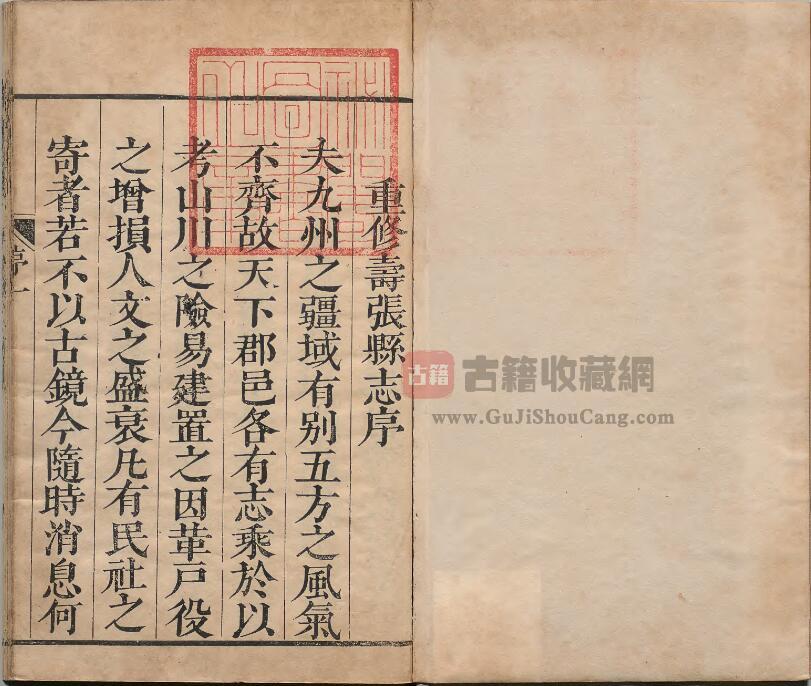 重修壽張縣志序
夫九州之疆域有别五方之風氣
不齊故天下郡邑各有志乘於以
考山川之險易建置之因革戸役
之增損人文之盛衰凡有民社之
寄者若不以古鏡今隨時消息何
序一
古籍
古籍收藏網
www.GuJiShouCang.com